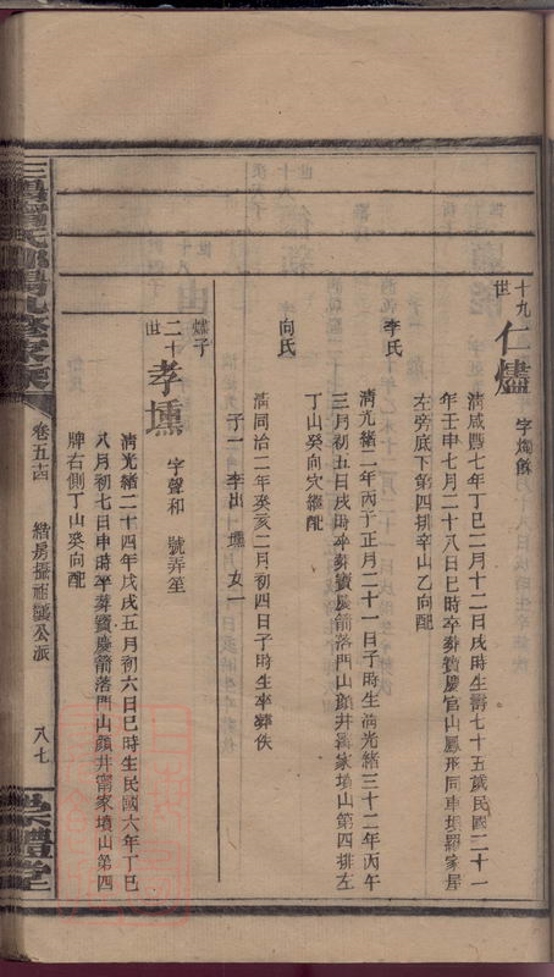 十九世
仁燼
字燭餘
清咸豐七年丁巳二月十二日戌時生壽七十五歲民國二十一
年壬申七月二十八日巳時卒葬寶慶官山鳳形同車垻羅家屋
左旁底下第四排辛山乙向配
李氏
清光緒二年丙子正月二十一日子時生淸光緒三十二年丙午
三月初五日戌時卒葬寶慶箭落門山顏井甯家墳山第四排左
丁山癸向穴繼配
向氏
淸同治二年癸亥二月初四日子時生卒葬佚
子一 李出 壎 女一
燼子
二十世
孝壎
字聲和 號弄笙
淸光緒二十四年戊戌五月初六日巳時生民國六年丁巳
八月初七日申時卒葬寶慶箭落門山顏井甯家墳山第四
牌右側丁山癸向配
卷五十四
公派
八七